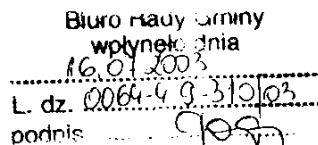 Biuro Rady Gminy
wpłynęło dnia
16.01.2003
L. dz. 0064-49-310/03
podpis